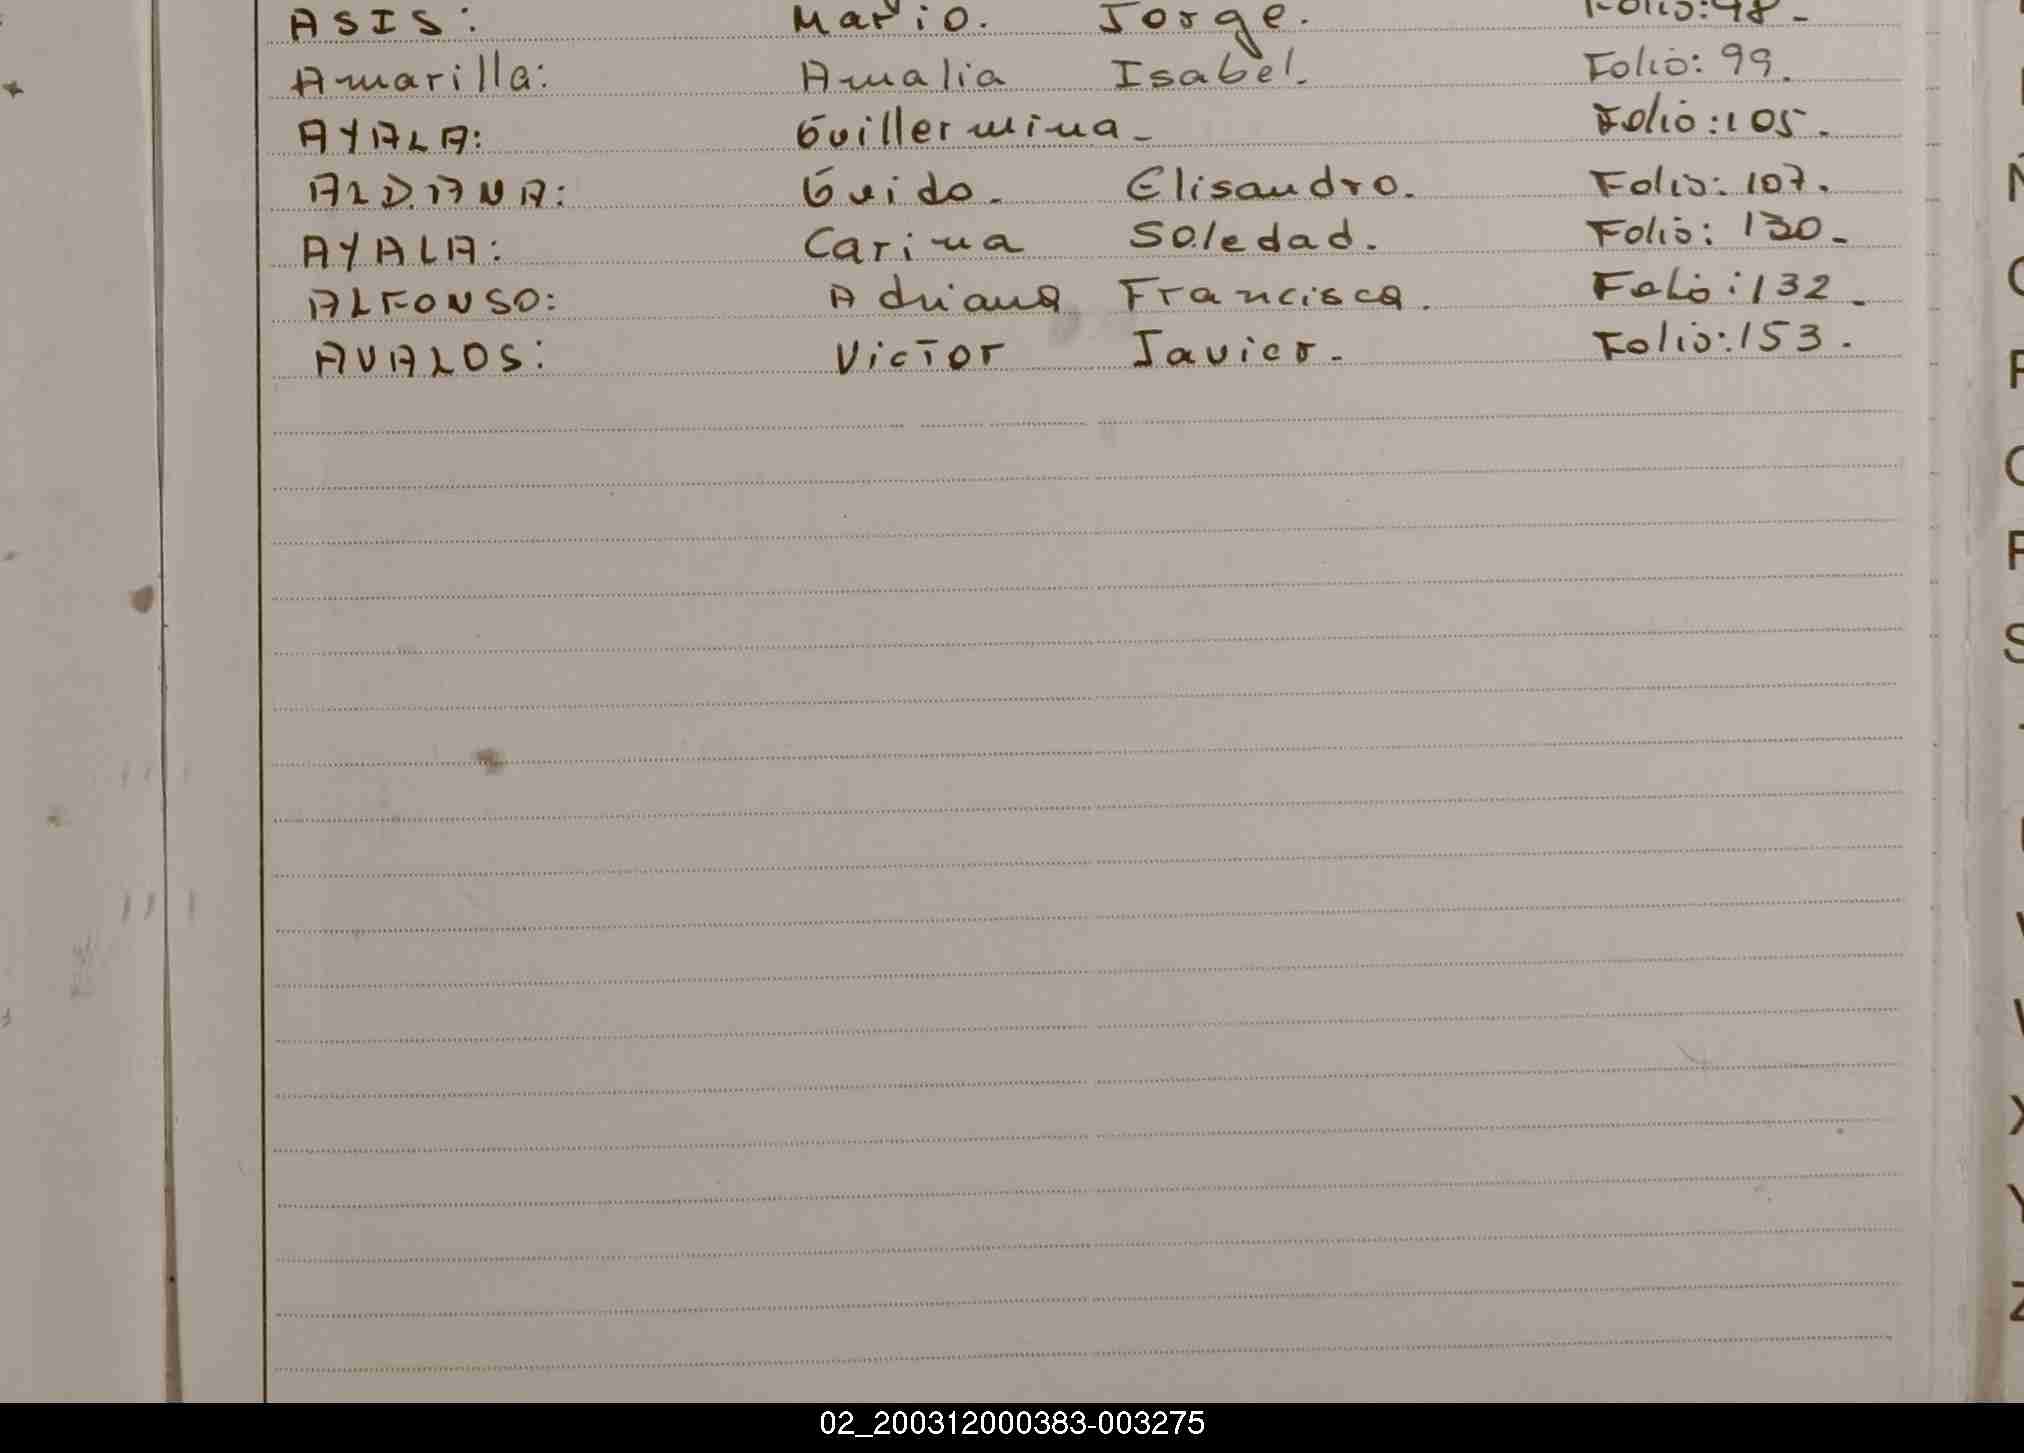 ASIS: Mario. Jorge. Folio: 98-
Amarilla: Amalia Isabel. Folio: 99.
AYALA: Guillermina- Folio: 105.
ALDANA: Guido. Elisandro. Folio: 107.
AYALA: Carina Soledad. Folio: 130-
ALFONSO: Adriana Francisca. Folio: 132-
AVALOS: Victor Javier. Folio: 153.
Ñ
S
X
Y
Z
02_200312000383-003275